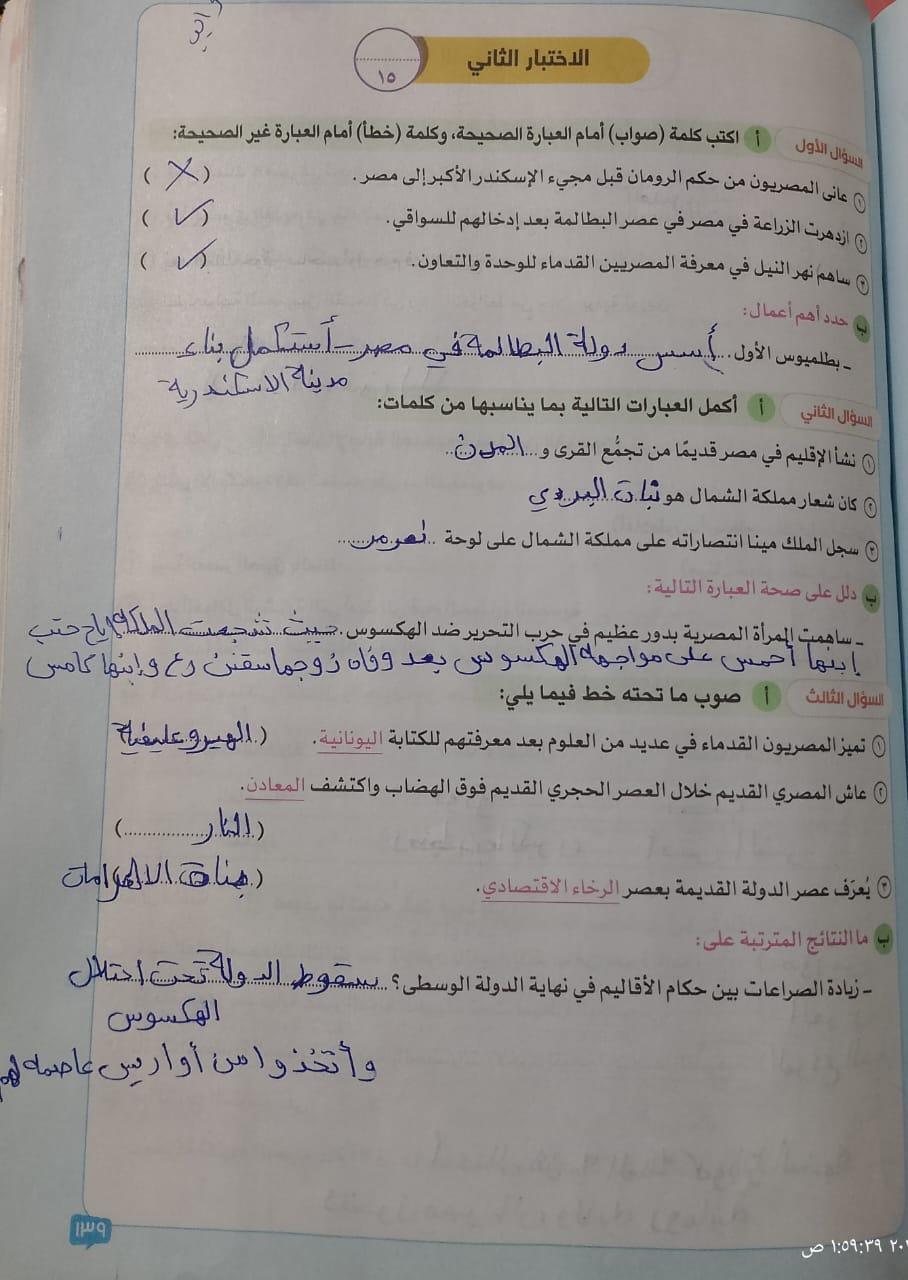 واجب
الاختبار الثاني
١٥
السؤال الأول أ اكتب كلمة (صواب) أمام العبارة الصحيحة، وكلمة (خطأ) أمام العبارة غير الصحيحة:
١ عانى المصريون من حكم الرومان قبل مجيء الإسكندر الأكبر إلى مصر. (✗)
٢ ازدهرت الزراعة في مصر في عصر البطالمة بعد إدخالهم للسواقي. (✓)
٣ ساهم نهر النيل في معرفة المصريين القدماء للوحدة والتعاون. (✓)
ب حدد أهم أعمال:
- بطلميوس الأول. أسس دولة البطالمة في مصر - أستكمل بناء
مدينة الاسكندرية
السؤال الثاني أ أكمل العبارات التالية بما يناسبها من كلمات:
١ نشأ الإقليم في مصر قديمًا من تجمُّع القرى و...المدن..
٢ كان شعار مملكة الشمال هو نبات البردي
٣ سجل الملك مينا انتصاراته على مملكة الشمال على لوحة ..نعرمر...
ب دلل على صحة العبارة التالية:
- ساهمت المرأة المصرية بدور عظيم في حرب التحرير ضد الهكسوس. حيث شجعت الملكة إياح حتب
إبنها أحمس على مواجهة الهكسوس بعد وفاه زوجها سقنن رع وإبنها كامس
السؤال الثالث أ صوب ما تحته خط فيما يلي:
١ تميز المصريون القدماء في عديد من العلوم بعد معرفتهم للكتابة اليونانية. (الهيروغليفية)
٢ عاش المصري القديم خلال العصر الحجري القديم فوق الهضاب واكتشف المعادن.
(النار)
٣ يُعرَف عصر الدولة القديمة بعصر الرخاء الاقتصادي. (بناة الاهرامات)
ب ما النتائج المترتبة على:
- زيادة الصراعات بين حكام الأقاليم في نهاية الدولة الوسطى؟ سقوط الدولة تحت احتلال
الهكسوس
وأتخذوا من أواريس عاصمه لهم
١٣٩
١:٥٩:٣٩ ص